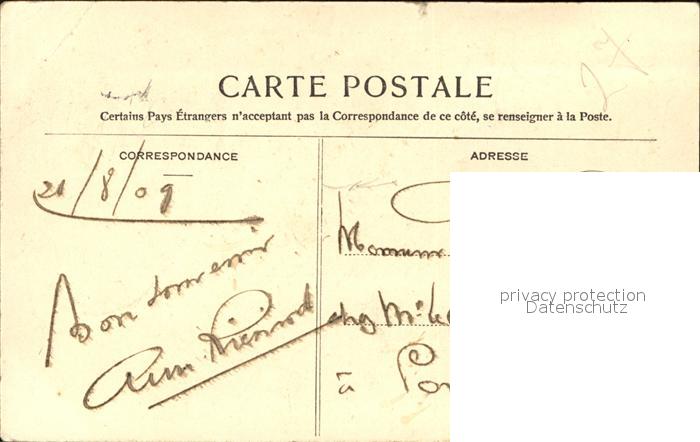 CARTE POSTALE
Certains Pays Étrangers n'acceptant pas la Correspondance de ce côté, se renseigner à la Poste.
CORRESPONDANCE
ADRESSE
21/8/09
Bon souvenir
Monsieur
chez Mr
à
privacy protection
Datenschutz